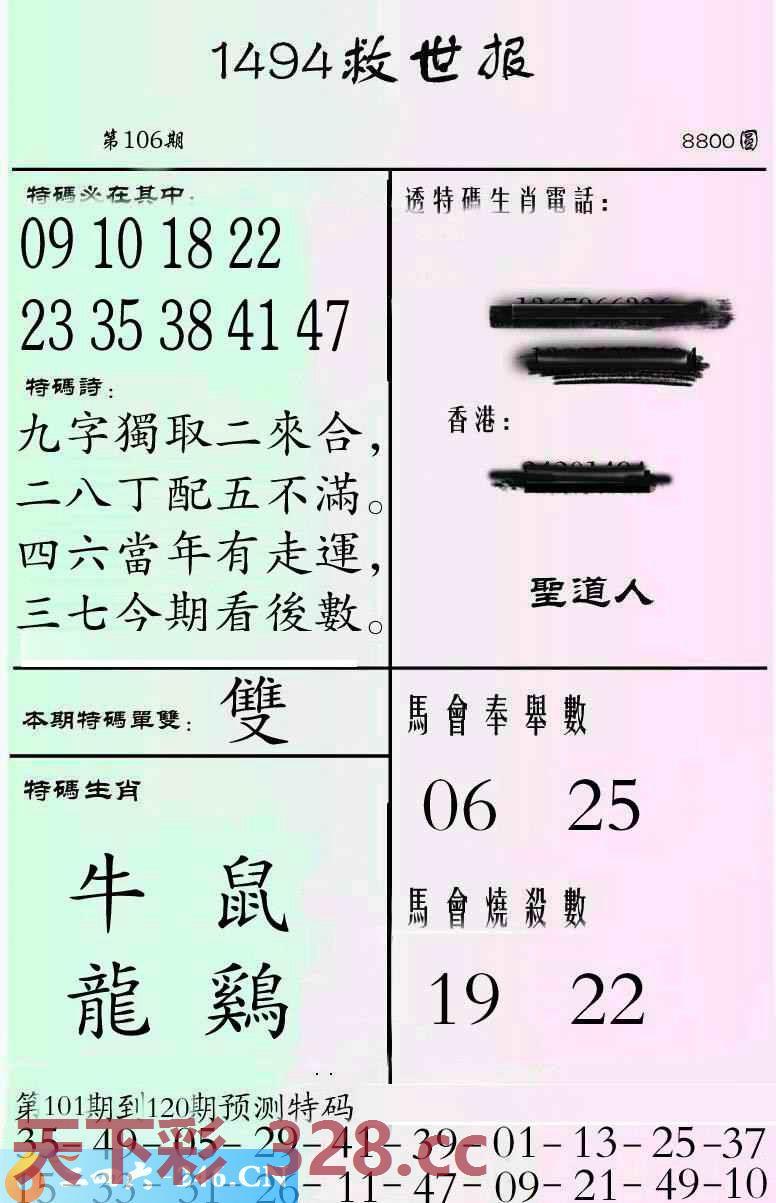 1494救世报
第106期
8800圆
特碼必在其中:
09 10 18 22
23 35 38 41 47
特碼詩:
九字獨取二來合,
二八丁配五不滿。
四六當年有走運,
三七今期看後數。
透特碼生肖電話:
香港:
聖道人
本期特碼單雙: 雙
特碼生肖
牛 鼠
龍 鷄
馬會奉舉數
06 25
馬會燒殺數
19 22
第101期到120期预测特码
35-49-05-29-41-39-01-13-25-37
15-33-31-26-11-47-09-21-49-10
天下彩 328.cc
246.CN